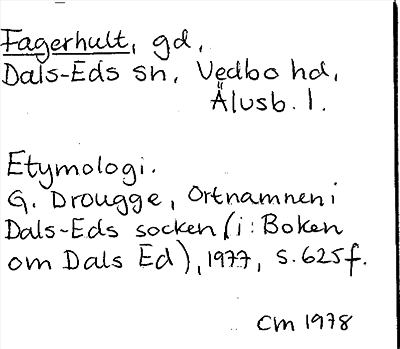 Fagerhult, gd,
Dals-Eds sn, Vedbo hd,
Älvsb. l.
Etymologi.
G. Drougge, Ortnamnen i
Dals-Eds socken (i: Boken
om Dals Ed), 1977, s. 625f.
CM 1978